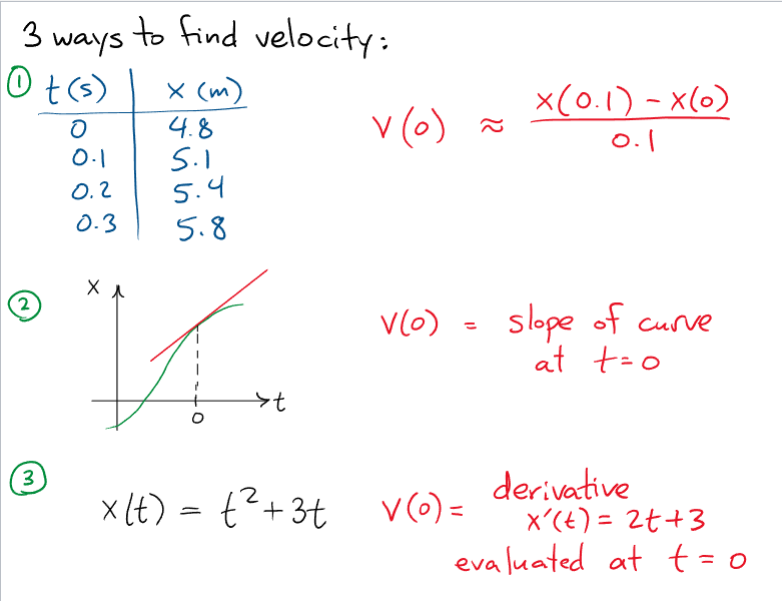 3 ways to find velocity:
① t(s) x (m)
0 4.8
0.1 5.1
0.2 5.4
0.3 5.8
v(0) ≈ x(0.1) - x(0)
0.1
② x
t
0
v(0) = slope of curve
at t=0
③ x(t) = t²+3t
v(0) = derivative
x'(t) = 2t+3
evaluated at t = 0